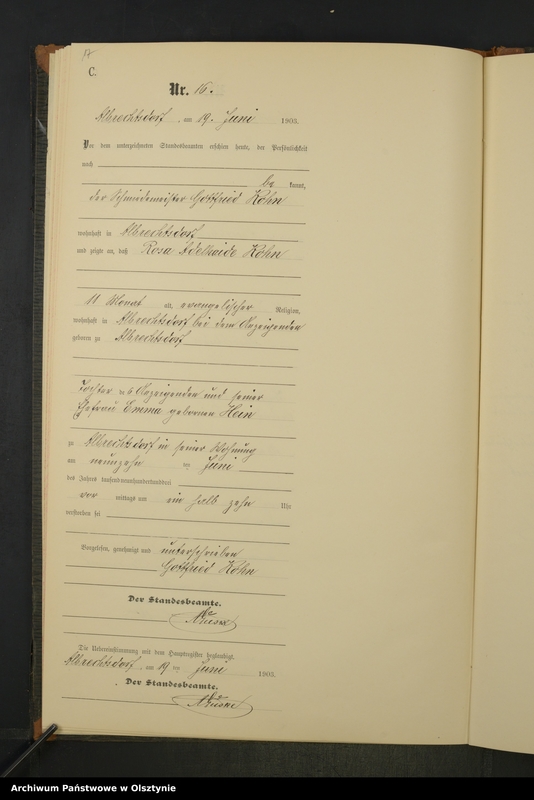 C.
Nr. 16.
Albrechtsdorf, am 19. Juni 1903.
Vor dem unterzeichneten Standesbeamten erschien heute, der Persönlichkeit
nach
be kannt,
der Schmiedemeister Gottfried Kohn
wohnhaft in Albrechtsdorf
und zeigte an, daß Rosa Adelhaide Kohn
11 Monat alt, evangelischer Religion,
wohnhaft in Albrechtsdorf bei dem Anzeigenden
geboren zu Albrechtsdorf
Tochter des Anzeigenden und seiner
Ehefrau Emma geborenen Hein
zu Albrechtsdorf in seiner Wohnung
am neunzehn ten Juni
des Jahres tausendneunhundertunddrei
vor mittags um ein halb zehn Uhr
verstorben sei
Vorgelesen, genehmigt und unterschrieben
Gottfried Kohn
Der Standesbeamte.
Die Uebereinstimmung mit dem Hauptregister beglaubigt.
Albrechtsdorf, am 19 ten Juni 1903.
Der Standesbeamte.
Archiwum Państwowe w Olsztynie